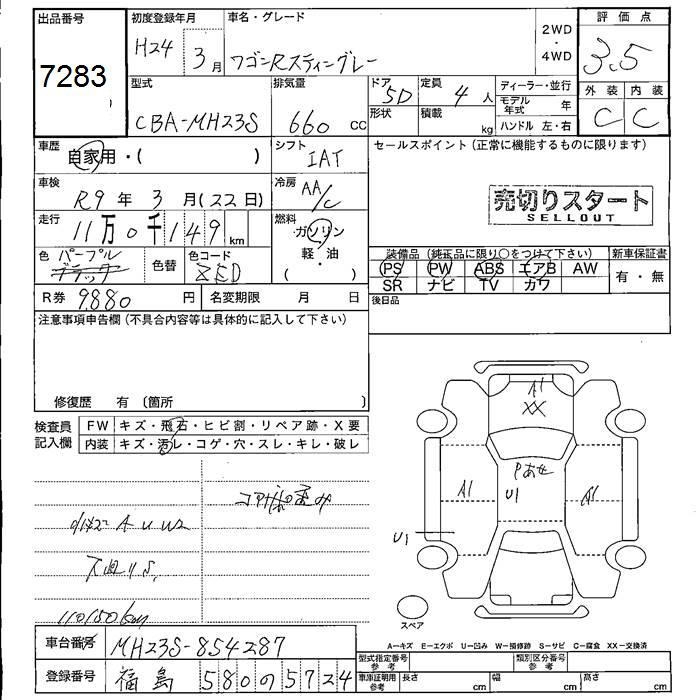 出品番号
7283
初度登録年月
H24 3月
車名・グレード
ワゴンRスティングレー
2WD
・
4WD
評価点
3.5
型式
CBA-MH23S
排気量
660 cc
ドア
5D
形状
定員
4人
積載
kg
ディーラー・並行
モデル年式 年
ハンドル 左・右
外装 内装
C C
車歴
自家用・( )
シフト
IAT
セールスポイント(正常に機能するものに限ります)
車検
R9年3月(22日)
冷房
AA/C
売切りスタート
SELLOUT
走行
11万0千149km
燃料
ガソリン
軽・油
( )
色 パープル
ブラック
色替
色コード
ZED
装備品(純正品に限り○をつけて下さい)
PS PW ABS エアB AW
SR ナビ TV カワ
新車保証書
有・無
R券 9880円
名変期限 月 日
後日品
注意事項申告欄(不具合内容等は具体的に記入して下さい)
修復歴 有 (箇所 )
検査員記入欄
FW キズ・飛石・ヒビ割・リペア跡・X要
内装 キズ・汚レ・コゲ・穴・スレ・キレ・破レ
コアサポ歪み
A U W2
下廻りS,
110150km
A1
XX
Pあせ
U1
A1
A1
U1
スペア
A-キズ E-エクボ U-凹み W-補修跡 S-サビ C-腐食 XX-交換済
車台番号 MH23S-854287
登録番号 福島 580の5724
型式指定番号 参考
類別区分番号 参考
車庫証明用 参考
長さ cm 幅 cm 高さ cm